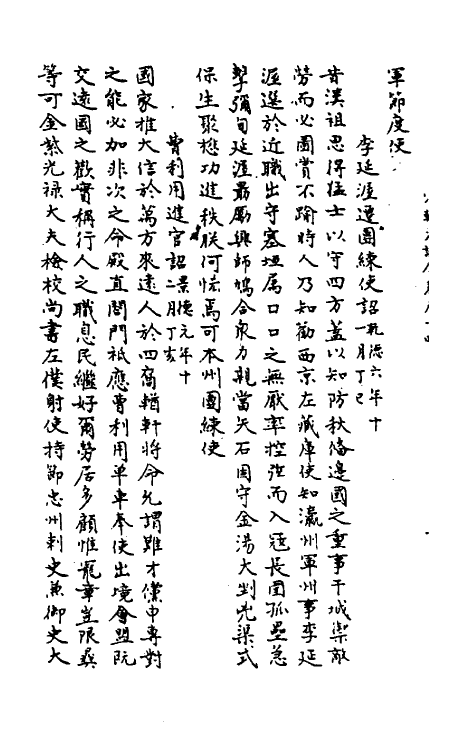 軍節度使
李延渥遷團練使詔乾德六年十一月丁巳
昔漢祖思得猛士以守四方蓋以知防秋備邊國之重事干城禦敵
勞而必圖賞不踰時人乃知勸西京左藏庫使知瀛州軍州事李延
渥選於近職出守塞垣属口口之無厭率控弦而入寇長圍孤壘急
擊彌旬延渥最勵興師鳩合衆力親當矢石固守金湯大剉兇渠式
保生聚懋功進秩朕何恡焉可本州團練使
曹利用進官詔景德元年十二月丁亥
國家推大信於萬方來遠人於四裔輶軒將命允謂雖才儻中專對
之能必加非次之命殿直閤門祗應曹利用單車奉使出境會盟阮
交遠國之歡實稱行人之職息民繼好爾勞居多顧惟寵章豈限彞
等可金紫光禄大夫檢校尚書左僕射使持節忠州刺史兼御史大